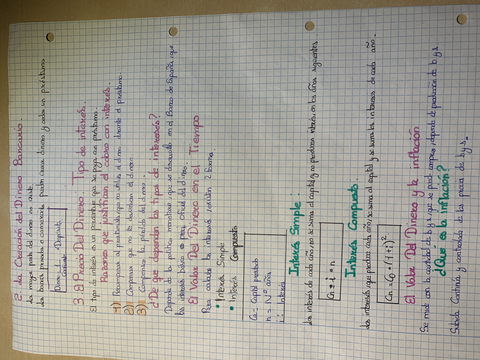 2. La Creación del Dinero Bancario.
La mayor parte del dinero se crea
Los bancos privados o comerciales, puede crear dinero y cada un préstamo
Dinero Depósito
3. El Precio Del Dinero: Tipo de interés.
El tipo de interés es un porcentaje que se paga por préstamo.
Razones que justifican el cobro con interés.
1) Recompensar al prestamista por no utilizar el dinero durante el préstamo.
2) Compensar que no te devuelvan el dinero.
3) Compensar la pérdida del dinero.
¿De qué dependen los tipos de intereses?
Depende de la política monetaria que se desarrolla en el Banco de España que
los intereses básico o precio oficial del dinero.
El Valor Del Dinero en el Tiempo
Para calcular los intereses existen 2 formas.
• Interés Simple
• Interés Compuesto
Co = Capital prestado
n = Nº años
i = interés
Interés Simple
Los intereses de cada año no se suma al capital y no producen interés en los años siguientes
Co · i · n
Interés Compuesto.
Los intereses que produce cada año, se suma al capital y se suma los intereses de cada año.
Cn = Co · (1 + i)²
El Valor Del Dinero y la inflación
Se mide con la cantidad de b y s que se puede comprar, depende de producción de b y s
¿Qué es la inflación?
Subida Continúa y controlada de los precios de b y s.